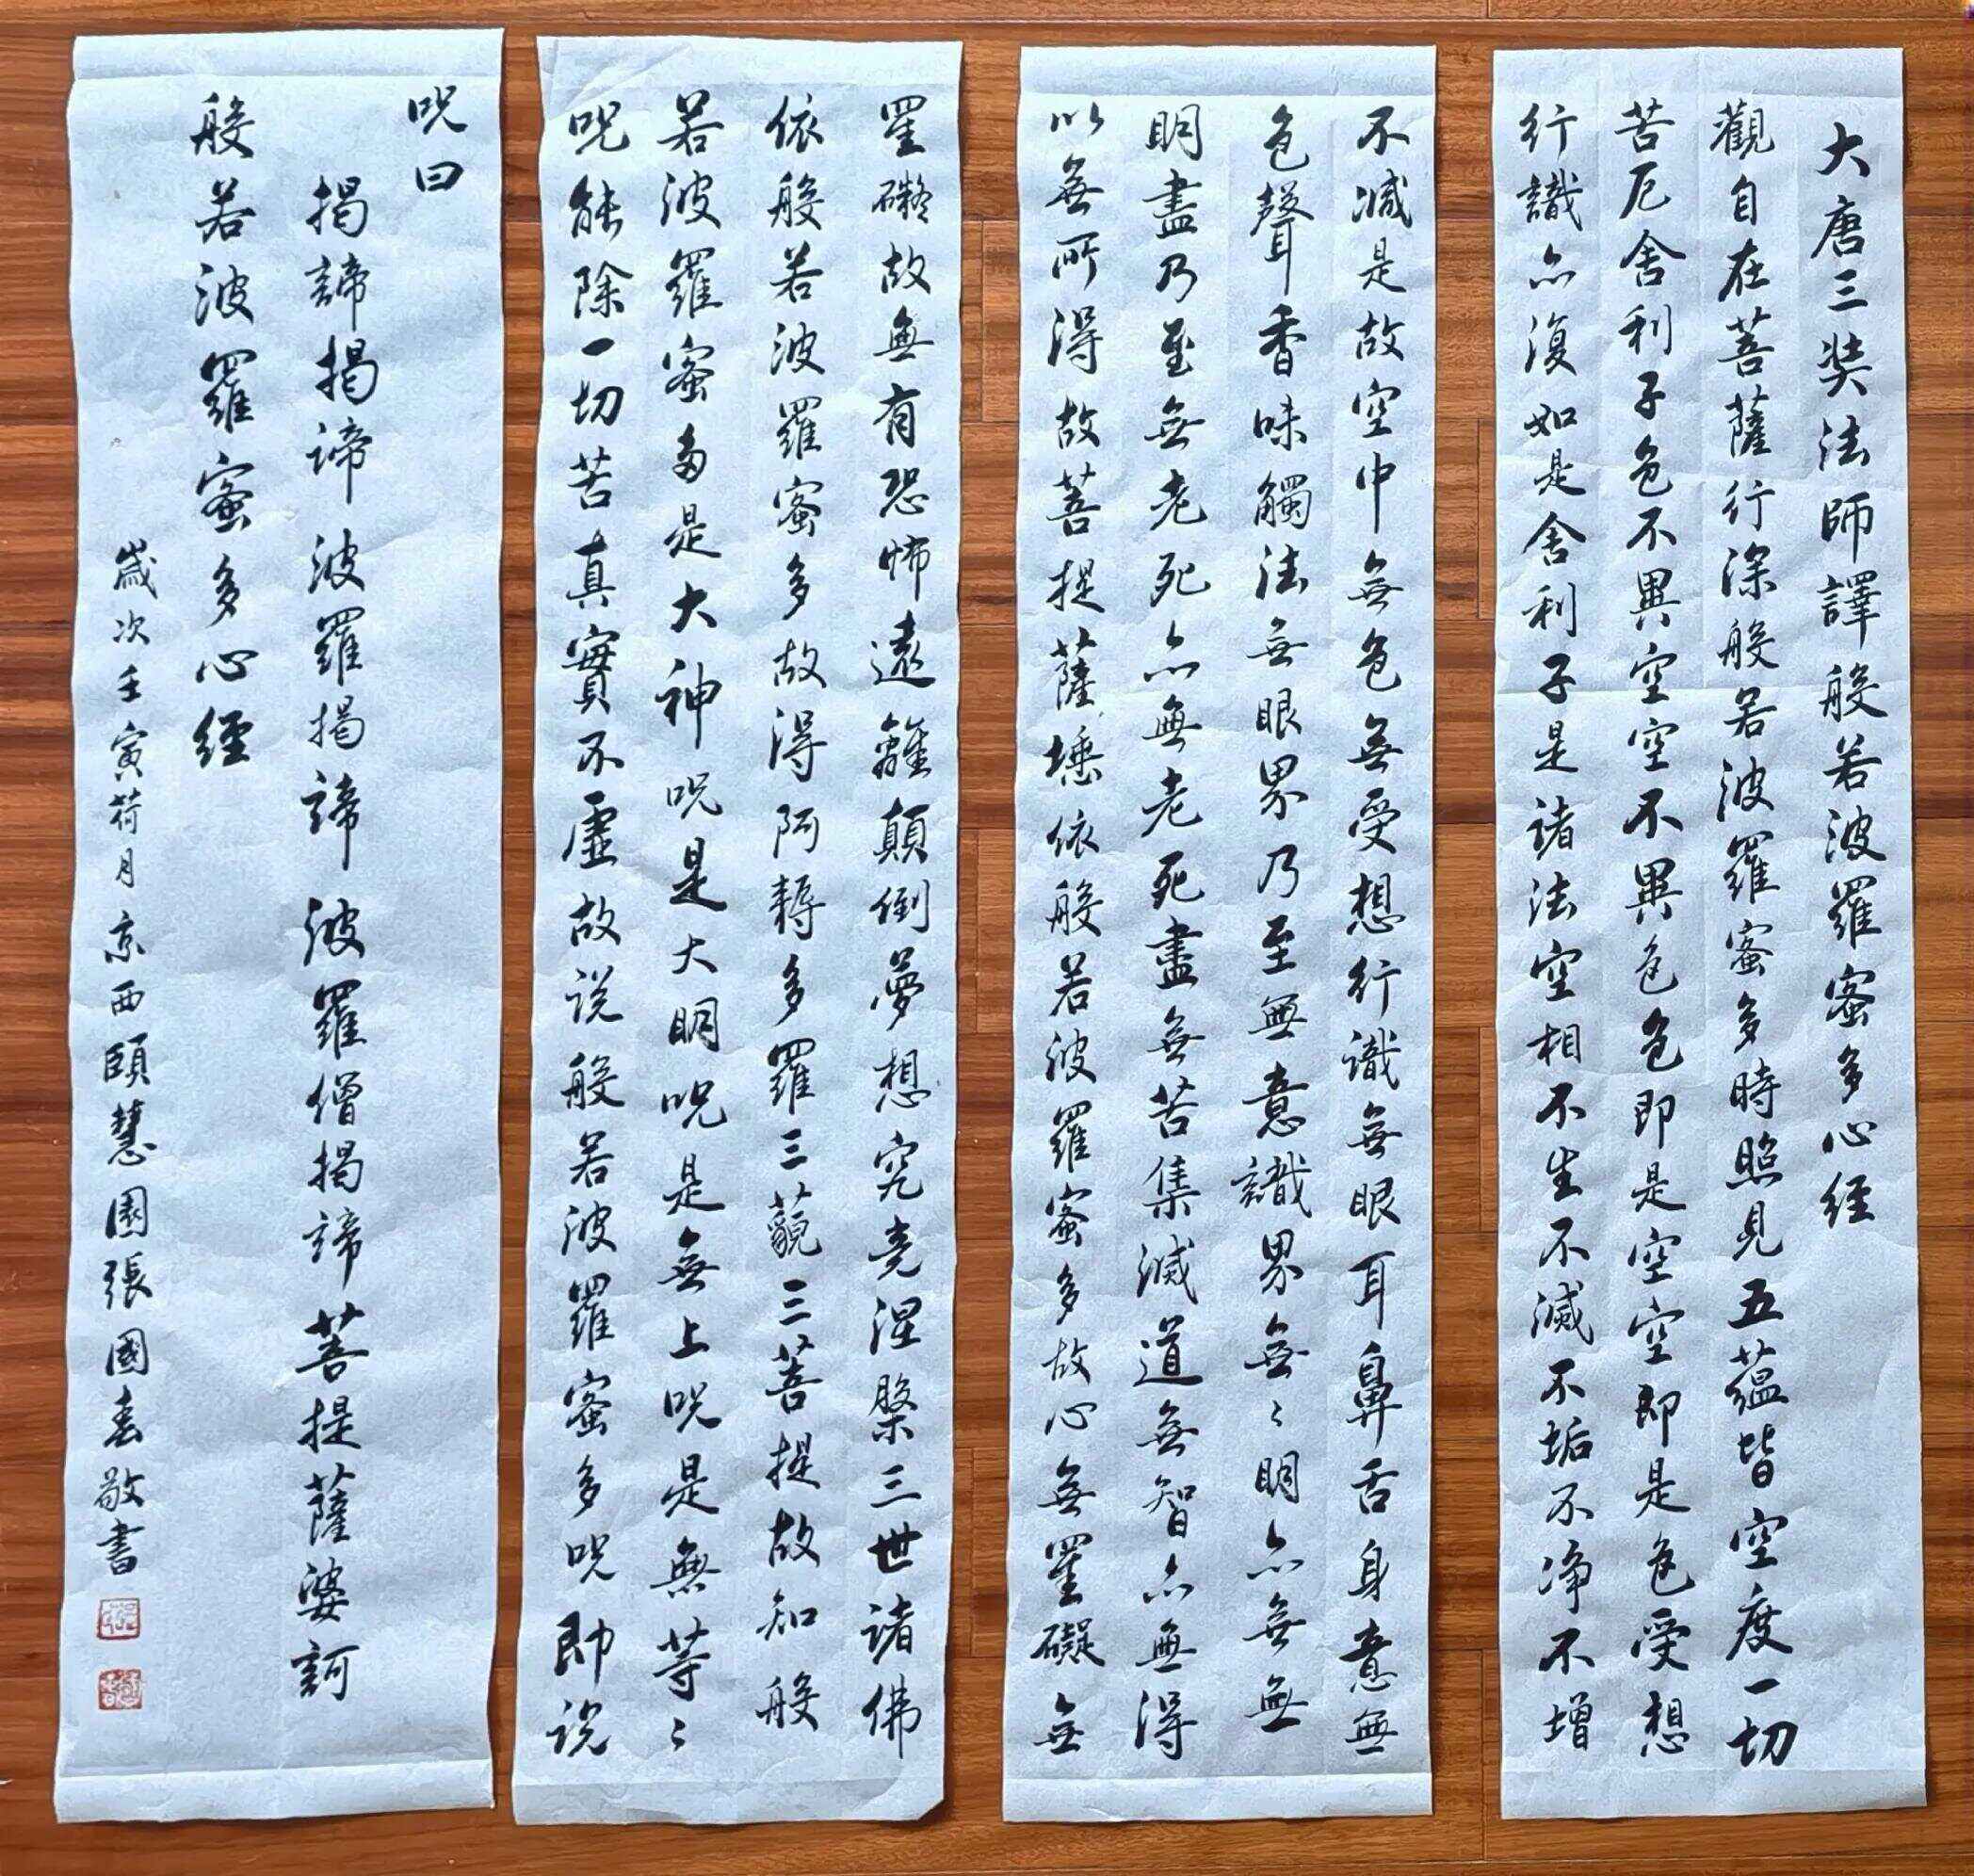 大唐三奘法師譯般若波羅蜜多心経
觀自在菩薩行深般若波羅蜜多時照見五蘊皆空度一切
苦厄舍利子色不異空空不異色色即是空空即是色受想
行識亦復如是舍利子是諸法空相不生不滅不垢不净不增
不減是故空中無色無受想行識無眼耳鼻舌身意無
色聲香味觸法無眼界乃至無意識界無〻明亦無無
明盡乃至無老死亦無老死盡無苦集滅道無智亦無得
以無所得故菩提薩埵依般若波羅蜜多故心無罣礙無
罣礙故無有恐怖遠離顛倒夢想究竟涅槃三世諸佛
依般若波羅蜜多故得阿耨多羅三藐三菩提故知般
若波羅蜜多是大神呪是大明呪是無上呪是無等〻
呪能除一切苦真實不虛故説般若波羅蜜多呪即説
呪曰
揭諦揭諦波羅揭諦波羅僧揭諦菩提薩婆訶
般若波羅蜜多心経
歲次壬寅荷月京西頤慧園張國春敬書